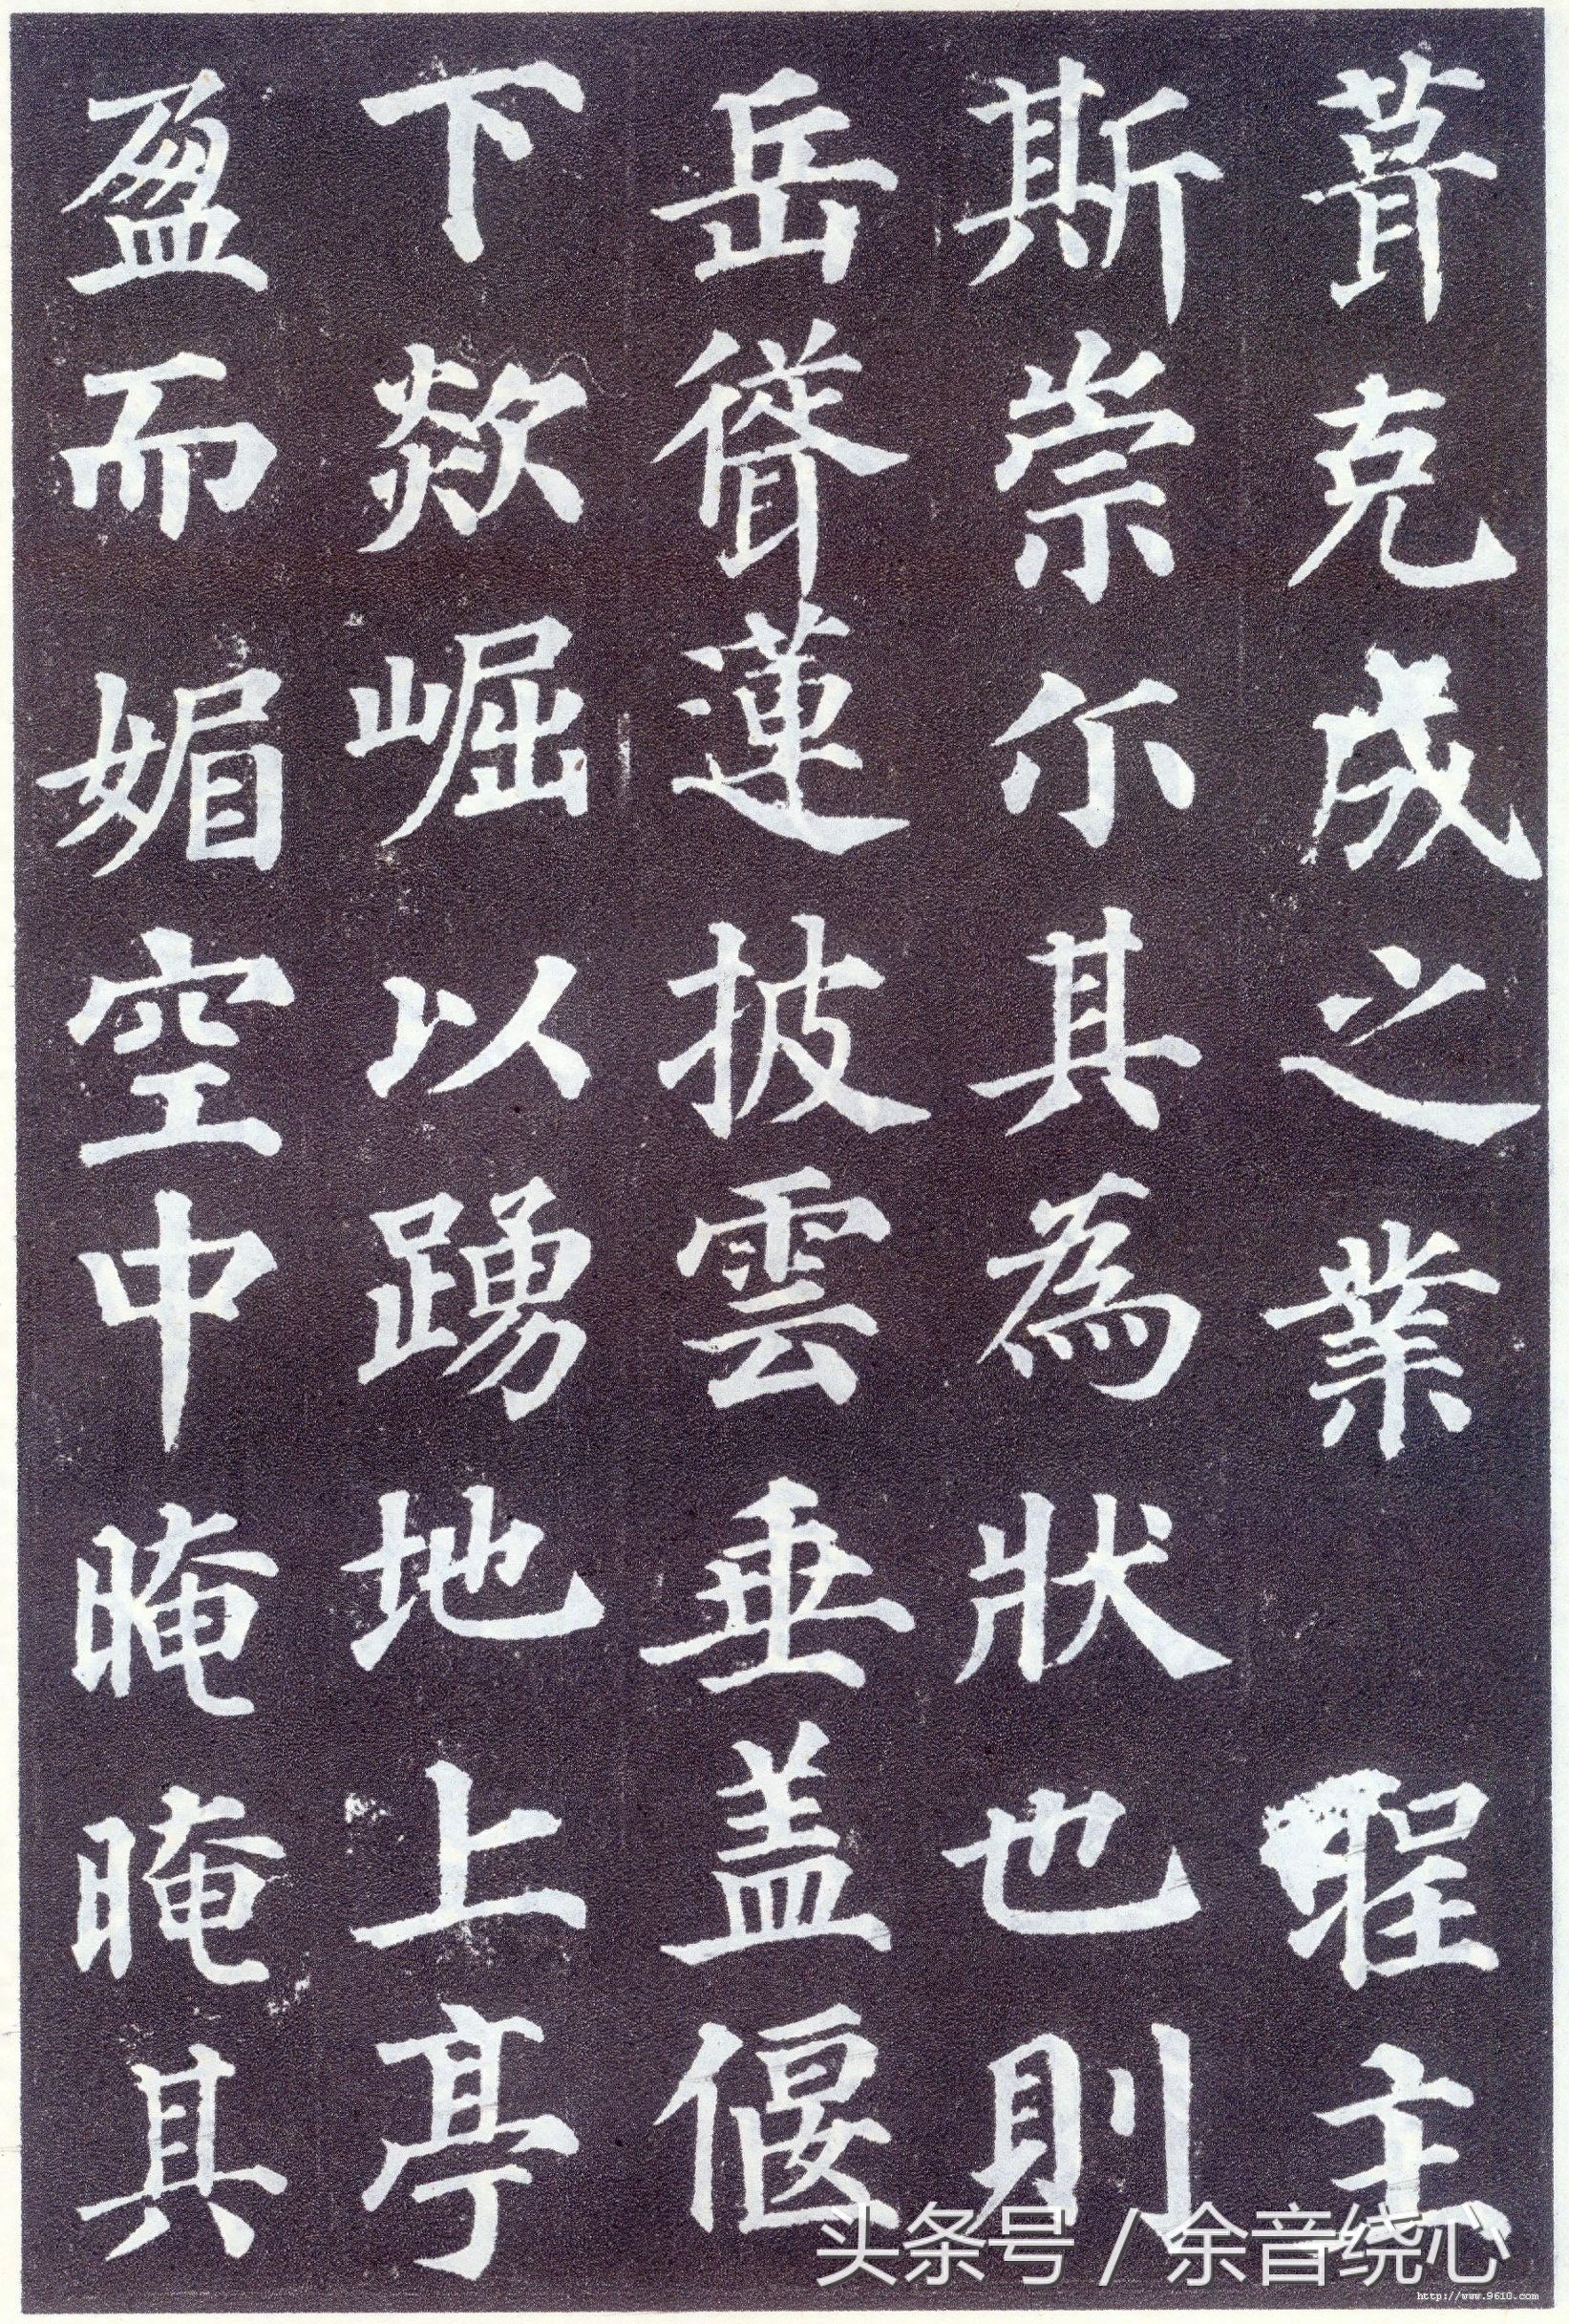 葺克成之業 聖主
斯崇尒其為狀也則
岳聳蓮披雲垂盖偃
下欻崛以踴地上亭
盈而媚空中晻晻其
头条号 / 余音绕心
http://www.9610.com